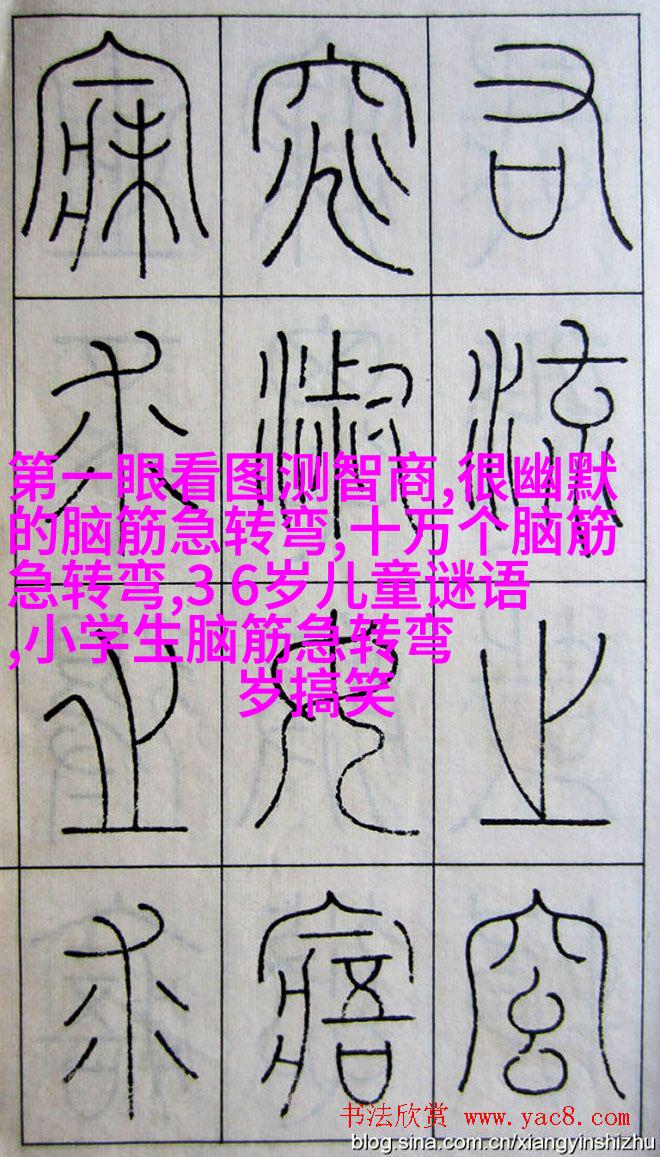 右流之窈
窕淑女寤
寐求之求
第一眼看图测智商,很幽默
的脑筋急转弯,十万个脑筋
急转弯,3 6岁儿童谜语
,小学生脑筋急转弯
岁搞笑
书法欣赏 www.yac8.com
blog.sina.com.cn/xiangyinshizhu